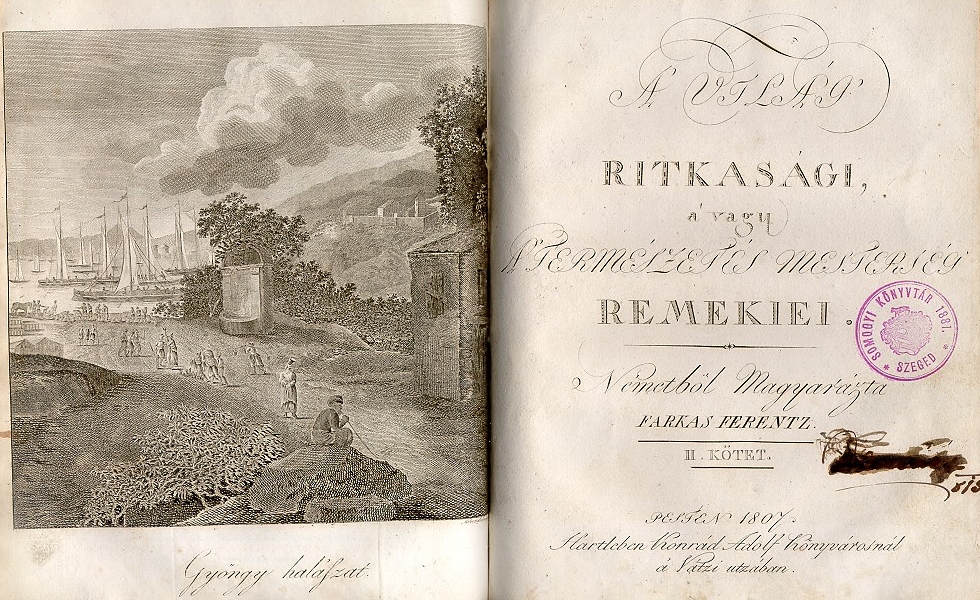 Gyöngy halászat.
A VILÁG
RITKASÁGI,
a' vagy
A' TERMÉSZET ÉS MESTERSÉG
REMEKIEI.
Németből Magyarázta
FARKAS FERENTZ.
II. KÖTET.
PESTEN 1807.
Hartleben Konrád Adolf Könyvárosnál
á Vátzi utzában.
SOMOGYI KÖNYVTÁR 1881.
* SZEGED *